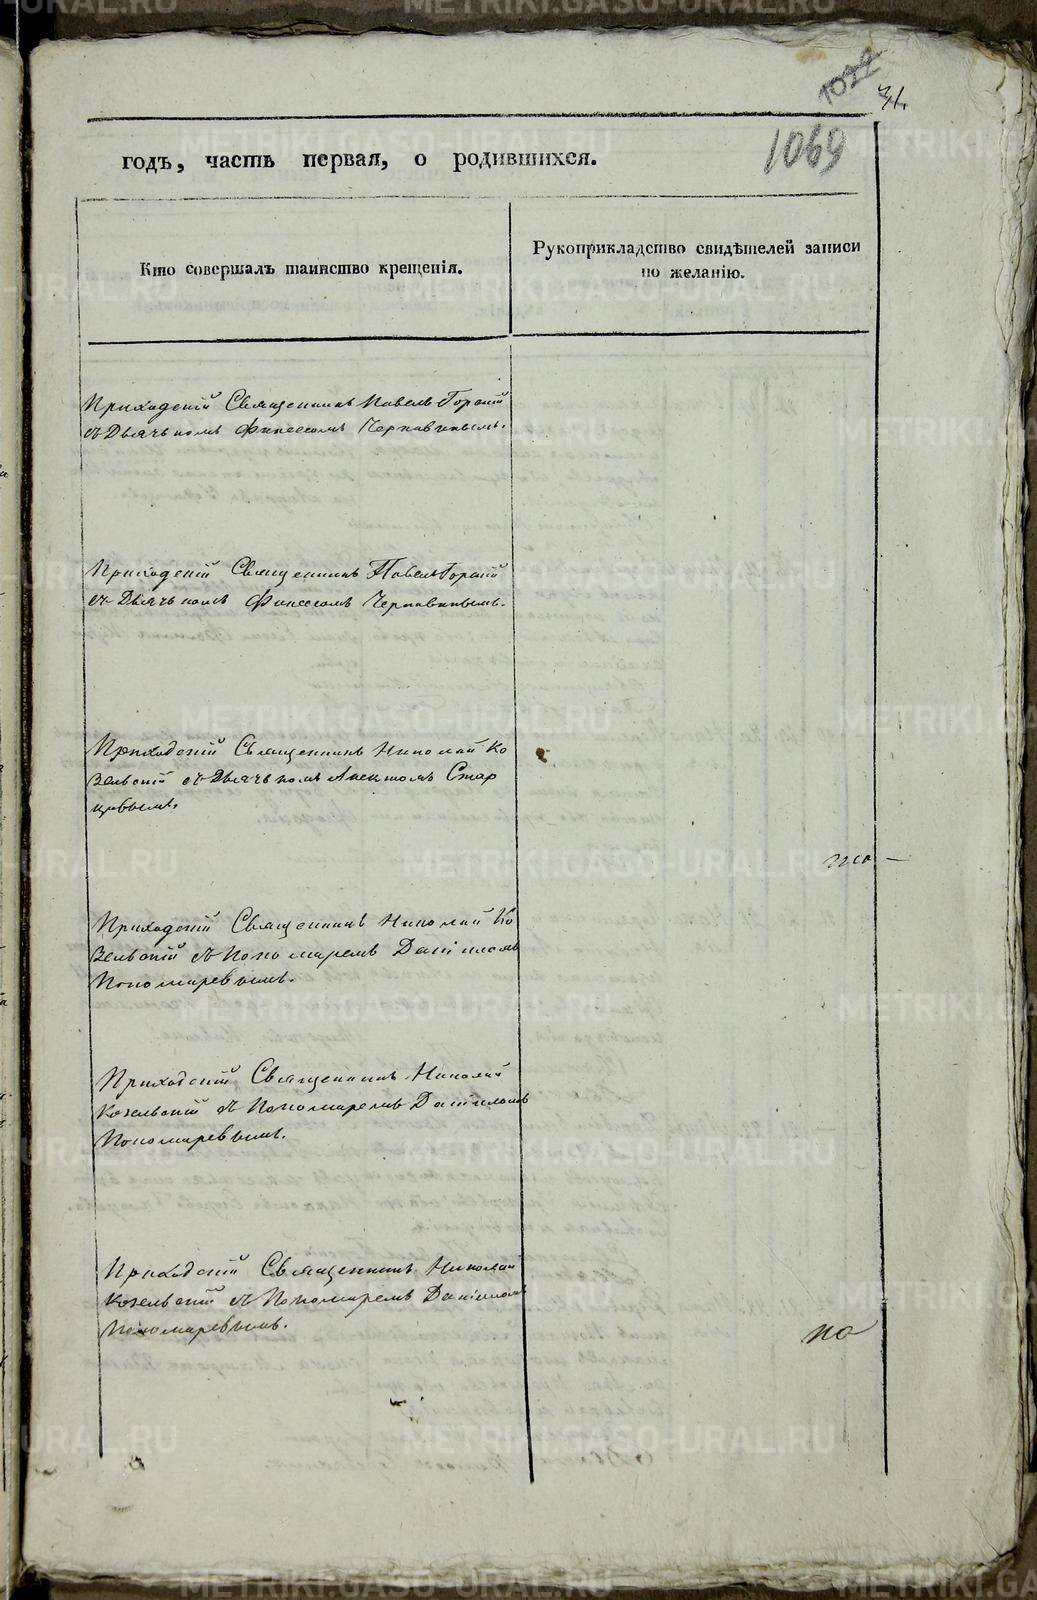 1072
31.
1069
годъ, часть первая, о родившихся.
Кто совершалъ таинство крещенія.
Рукоприкладство свидѣтелей записи
по желанію.
Приходскій Священникъ Павелъ Горскій
съ Дьячькомъ Финеесомъ Чернавинымъ.
Приходскій Священникъ Павелъ Горскій
съ Дьячькомъ Финеесомъ Чернавинымъ.
Приходскій Священникъ Николай Ко
зельскій съ Дьячькомъ Стар
цовымъ.
Приходскій Священникъ Николай Ко
зельскій съ Пономаремъ Даніиломъ
Пономаревымъ.
Приходскій Священникъ Николай
Козельскій съ Пономаремъ Даніиломъ
Пономаревымъ.
Приходскій Священникъ Николай
Козельскій съ Пономаремъ Даніиломъ
Пономаревымъ.
по
METRIKI.GASO-URAL.RU